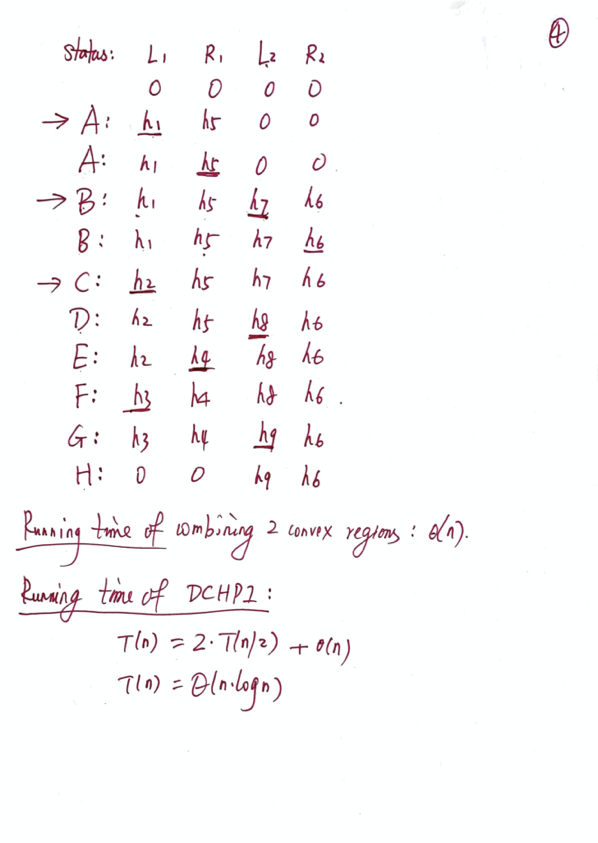 ④
Status: L1 R1 L2 R2
0 0 0 0
→ A: h1 h5 0 0
A: h1 h5 0 0.
→ B: h1 h5 h7 h6
B: h1 h5 h7 h6
→ C: h2 h5 h7 h6
D: h2 h5 h8 h6
E: h2 h4 h8 h6
F: h3 h4 h8 h6.
G: h3 h4 h9 h6
H: 0 0 h9 h6
Running time of combining 2 convex regions: θ(n).
Running time of DCHPI:
T(n) = 2·T(n/2) + θ(n)
T(n) = θ(n·logn)